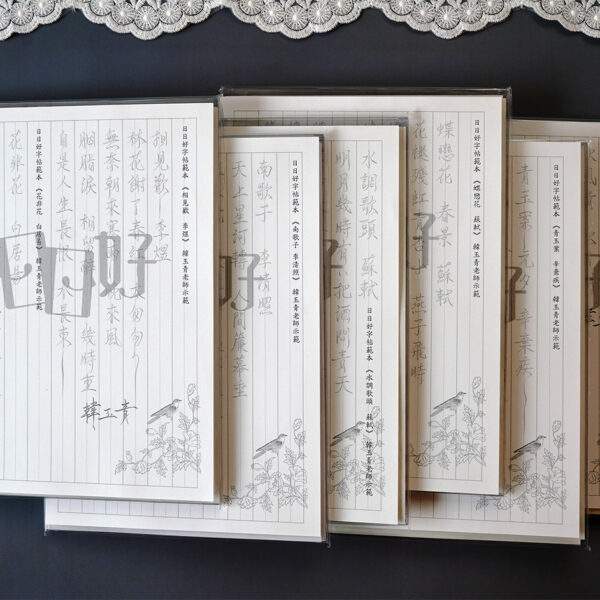 日日好字帖範本《相見歡 李煜》韓玉青老師示範
相見歡 李煜
林花謝了春紅 太匆匆
無奈朝來寒雨 晚來風
胭脂淚 相留醉 幾時重
自是人生長恨 水長東
韓玉青
日日好字帖範本《花非花 白居易》韓玉青老師示範
花非花 白居易
日日好字帖範本《南歌子 李清照》韓玉青老師示範
南歌子 李清照
天上星河轉 人間簾幕垂
日日好字帖範本《水調歌頭 蘇軾》韓玉青老師示範
水調歌頭 蘇軾
明月幾時有 把酒問青天
日日好字帖範本《蝶戀花 蘇軾》韓玉青老師示範
蝶戀花 春景 蘇軾
花褪殘紅 燕子飛時
日日好字帖範本《青玉案 辛棄疾》韓玉青老師示範
青玉案 元夕 辛棄疾
好